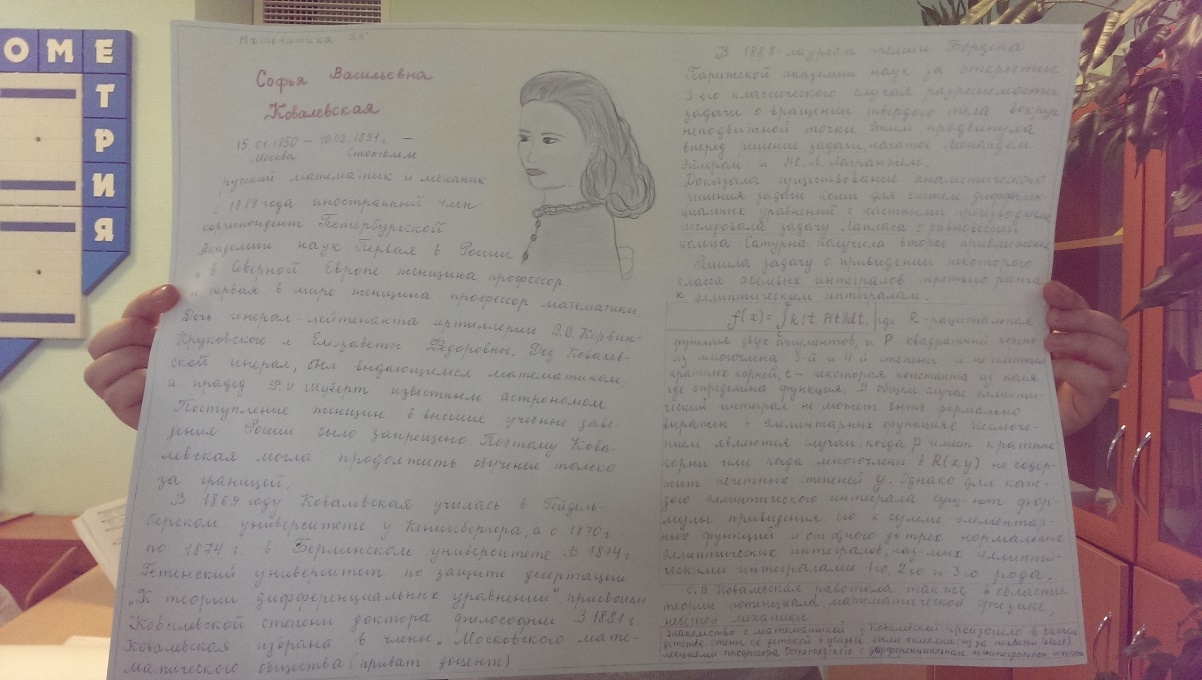 ОМЕТРИЯ
Математика
Софья Васильевна
Ковалевская
15.01.1850 – 10.02.1891. –
Москва Стокгольм
русский математик и механик
с 1889 года иностранный член
корреспондент Петербургской
Академии наук Первая в России
и в Северной Европе женщина профессор
и первая в мире женщина-профессор математики
Дочь генерал-лейтенанта артиллерии В.В. Корвин-
Круковского и Елизаветы Фёдоровны. Дед Ковалев-
ской был выдающемся математиком,
а прадед Ф И Шуберт известным астрономом
Поступление женщин в высшие учебные заве-
дения России было запрещено Поэтому Кова-
левская могла продолжить обучение только
за границей.
В 1869 году Ковалевская училась в Гейдель-
бергском университете у Кенигсбергера, а с 1870г.
по 1874 г. в Берлинском университете. В 1874г.
Гетенский университет по защите десертации
„К теории дифференциальных уравнений" присвоили
Ковалевской степени доктора философии В 1881г.
Ковалевская избрана в члены „Московского мате-
матического общества (приват доцент)
В 1888 лауреат премии Бордена
Парижской академии наук за открытие
3-его классического случая разрешимости
задачи о вращении твердого тела вокруг
неподвижной точки Этим продвинула
вперед решение задачи, начатое Леонардом
Эйлером и Ж. Л. Лагранжем.
Доказала существование аналитического
решения задачи Коши для систем дифферен-
циальных уравнений с частными производными
исследовала задачу Лапласа о равновесии
кольца Сатурна Получила второе приближение
Решила задачу о привидении некоторого
класса абелевых интегралов третьего ранга
к эллиптическим интегралам.
где R-рациональная
функция двух аргументов, и P квадратный корень
из многочлена 3-й и 4й степени и не имеющего
кратных корней, c – некоторая константа из поля
где определена функция. В общем случае эллипти-
ческий интеграл не может быть формально
выражен в элементарных функциях Исключе-
нием являются случаи, когда P имеет кратные
корни или когда многочлены в R(x y) не содер-
жит нечетных степеней y. Однако для каж-
дого эллиптического интеграла сущ-ют фор-
мулы привидения его к сумме элементар-
ных функций и от одного до трех нормальных
эллиптических интегралов, наз-мых эллипти-
ческими интегралами 1го, 2го и 3-го рода.
С. В Ковальская работала также в области
теории потенциала, математической физике,
небесной механики
Знакомство с математикой у Ковалевской произошло в раннем
детстве стены её детской в усадьбе были оклеены
лекциями профессора Остроградского о дифференциальном